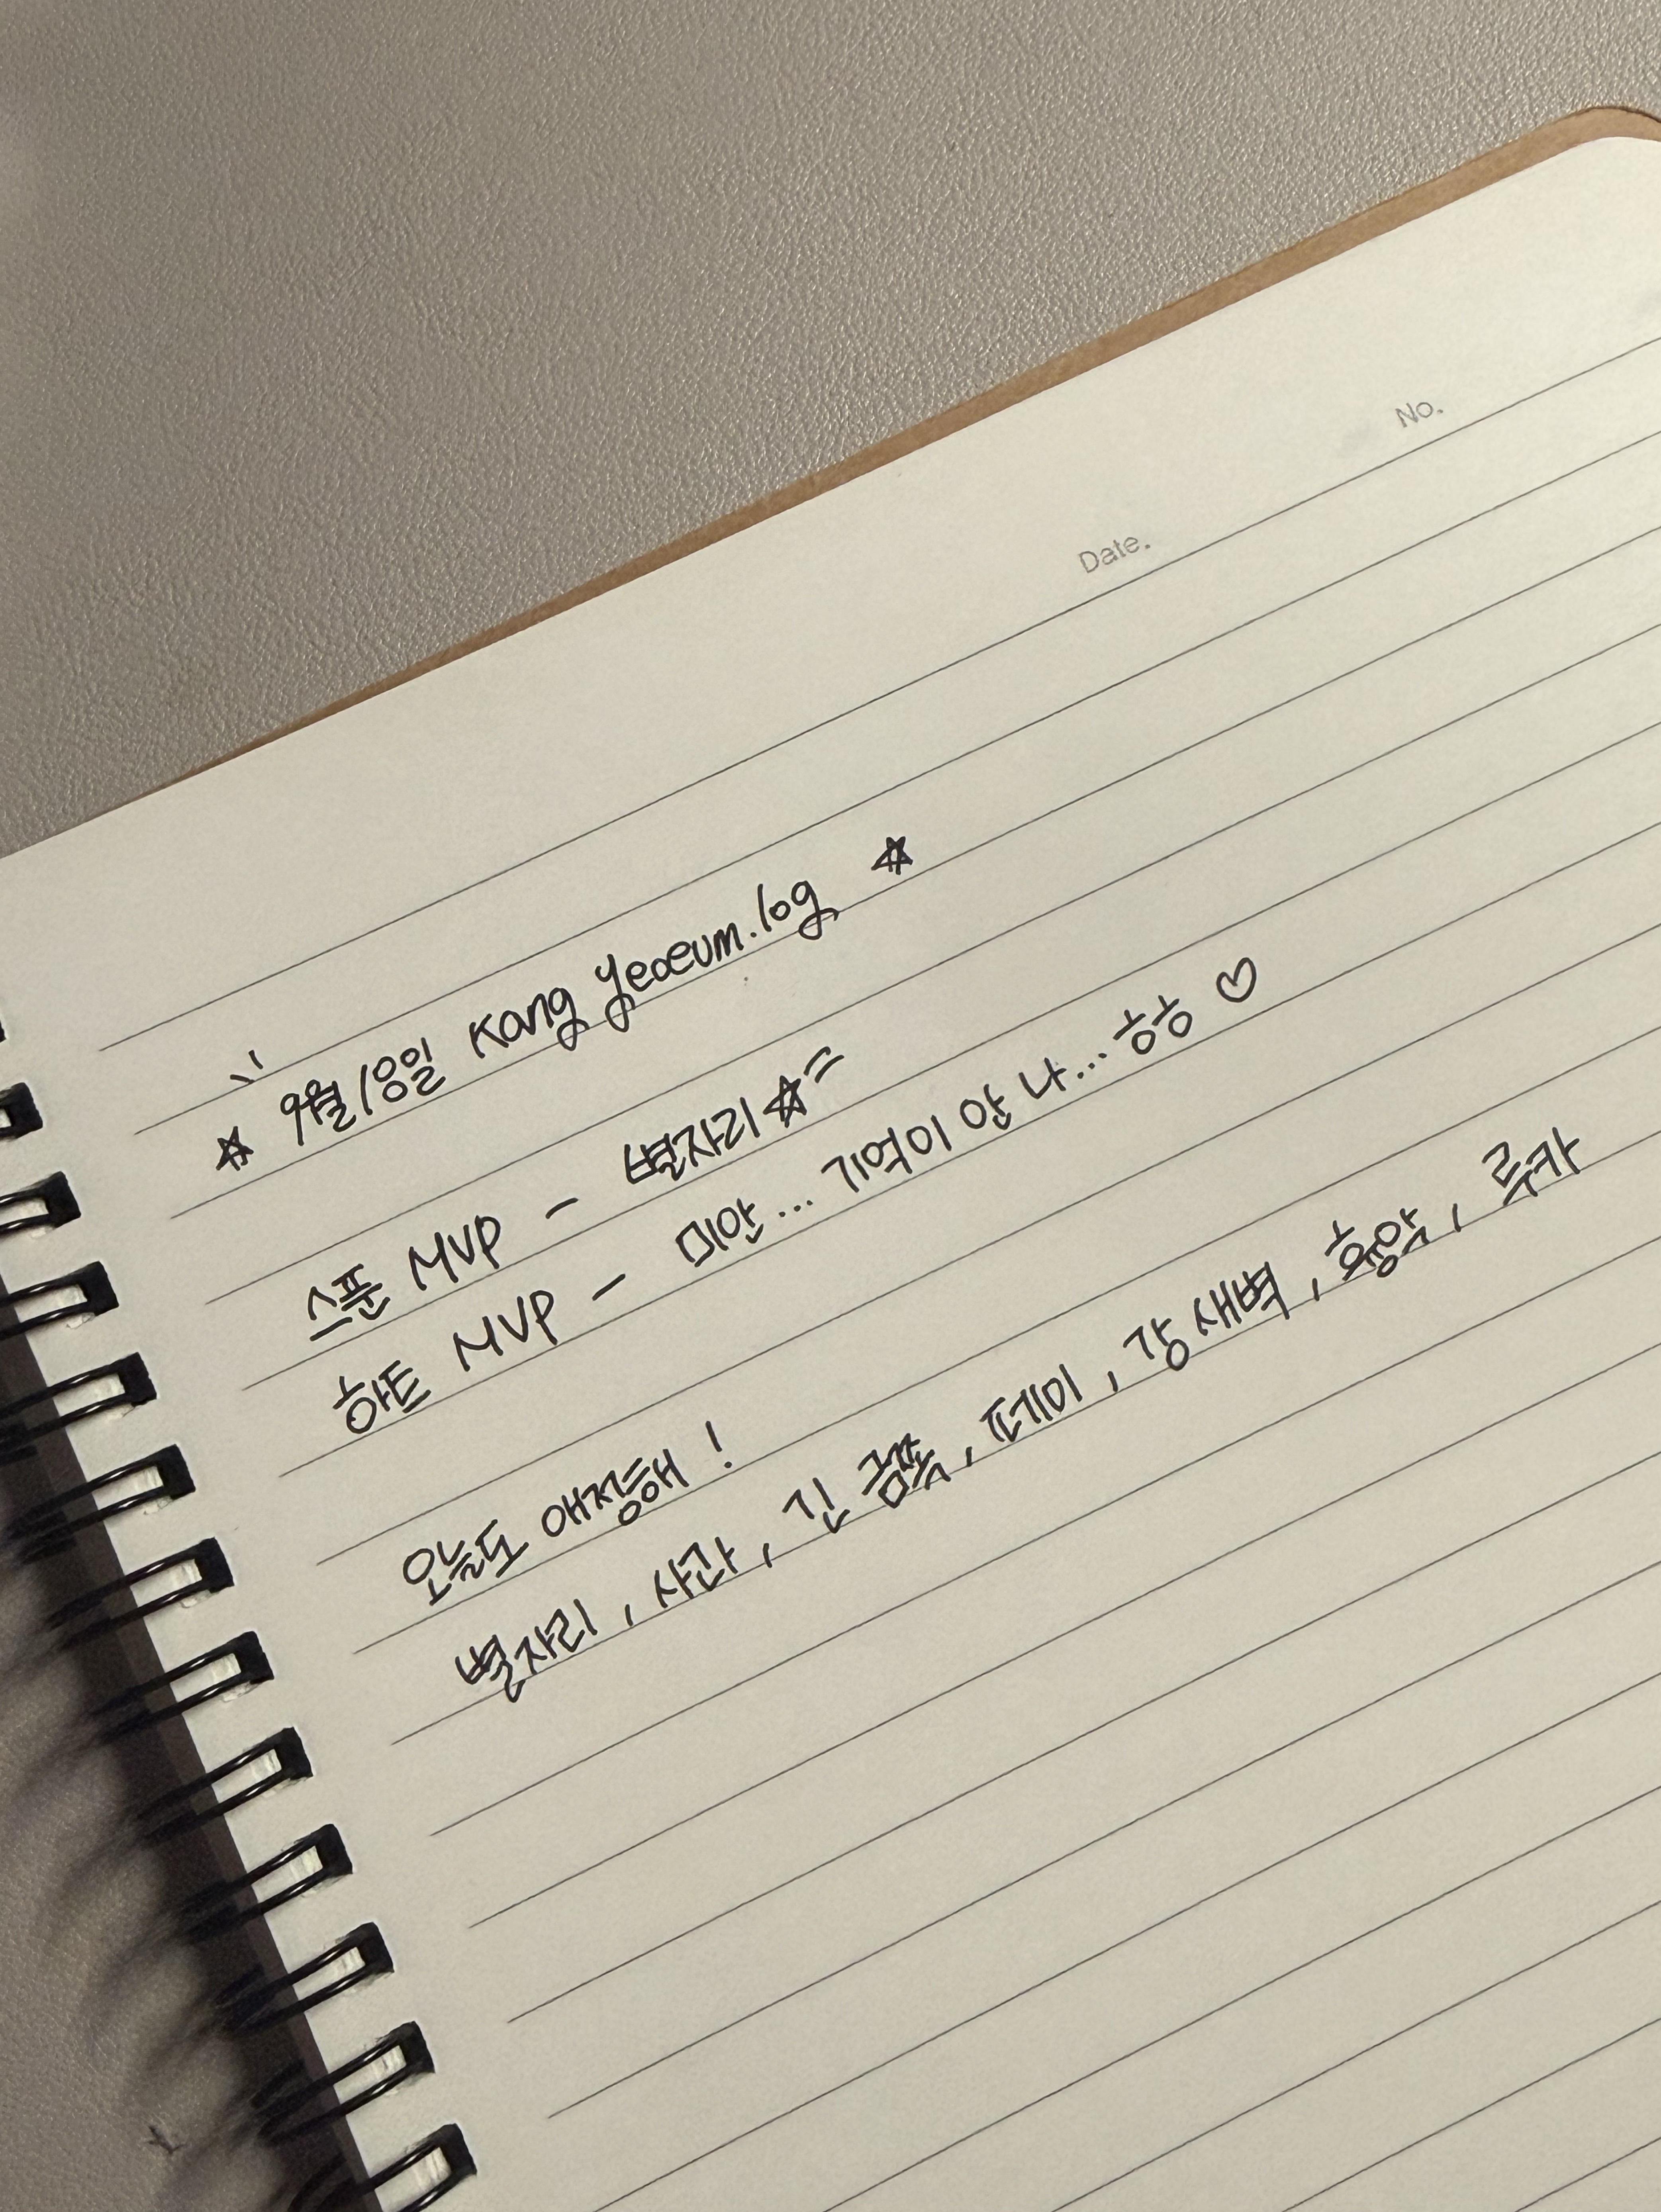 No.
Date.
☆ 9월 18일 Kang yeoeum.log ☆
스푼 MVP - 별자리☆
하트 MVP - 미안... 기억이 안 나... 흐흐 ♡
오늘도 애정해!
별자리, 사관, 긴 꿈쪽, 떼미, 강새벽, 흥앜, 루카